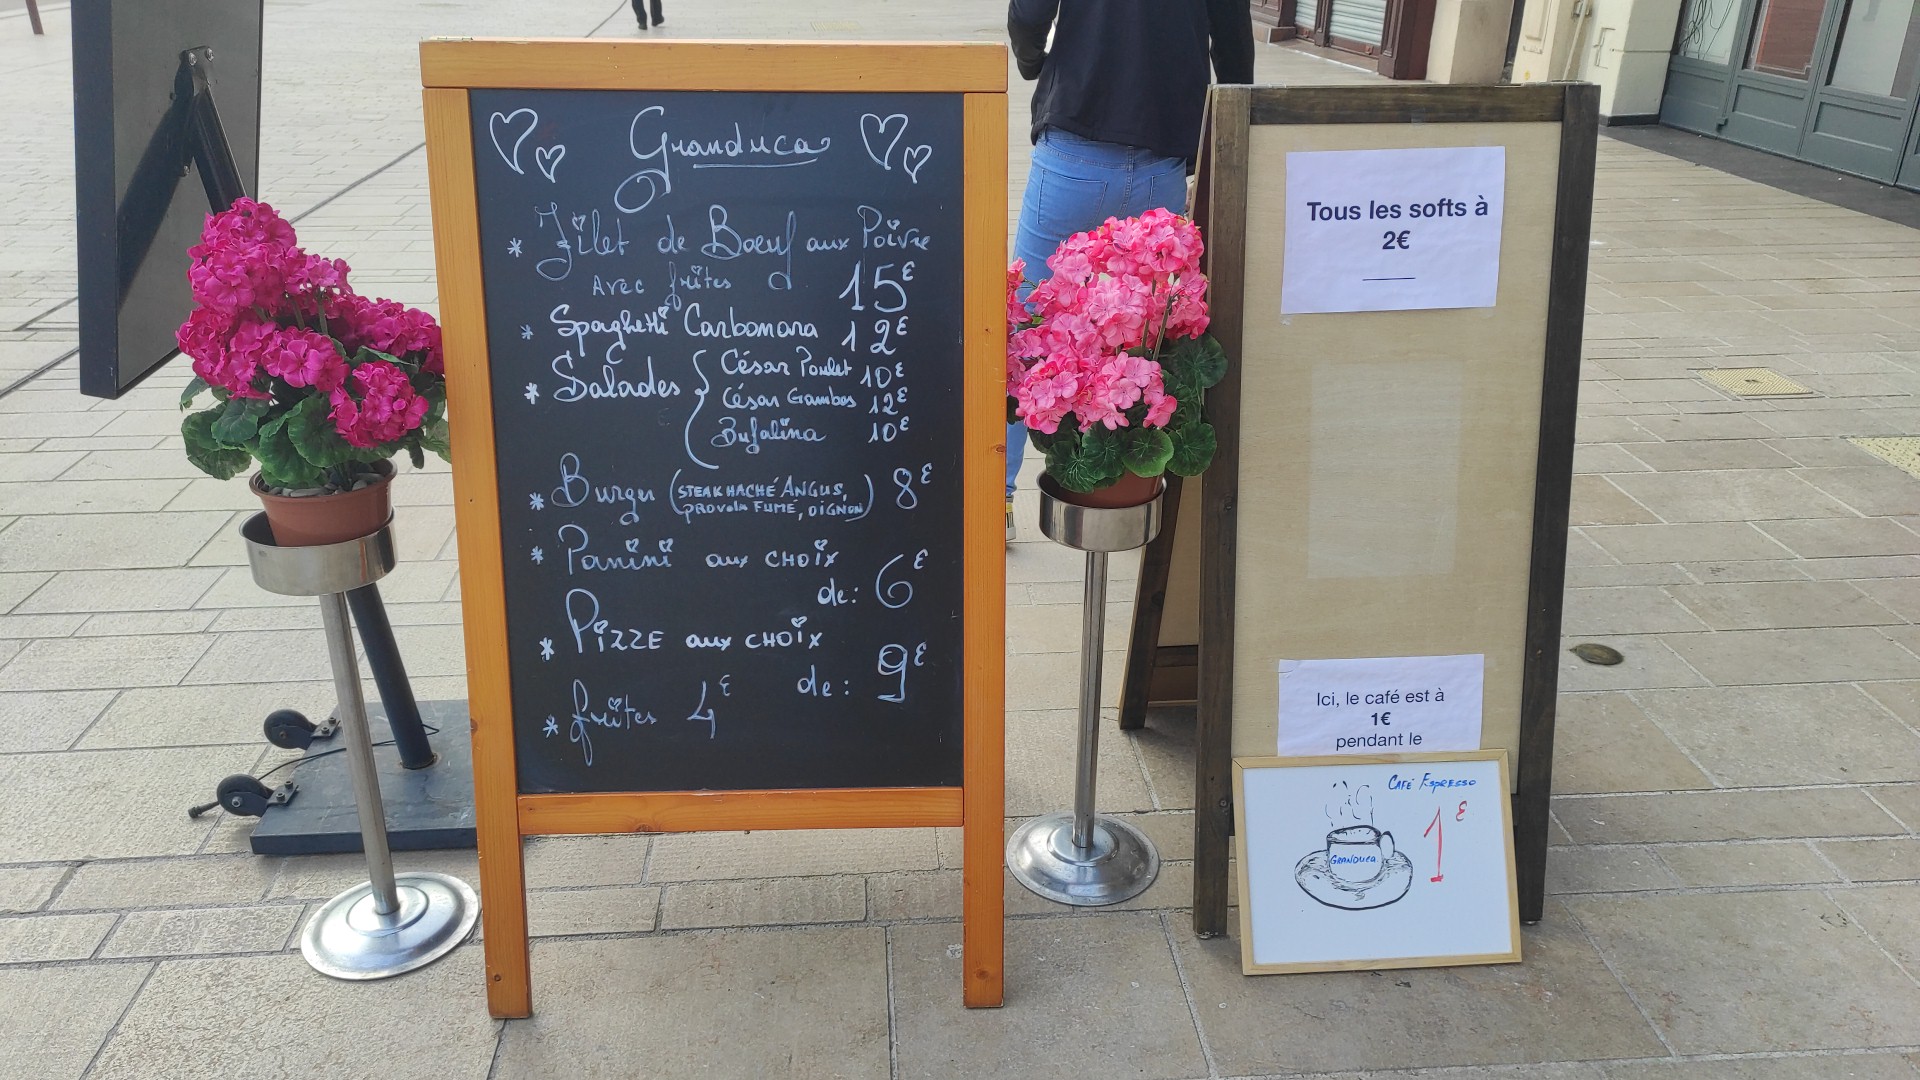 Granduca
* Filet de Bœuf aux Poivre
Avec frites 15€
* Spaghetti Carbonara 12€
* Salades { César Poulet 10€
César Gambas 12€
Bufalina 10€
* Burger (STEAK HACHÉ ANGUS,
PROVOLA FUMÉ, OIGNON) 8€
* Panini aux CHOIX
de: 6€
* PIZZE aux CHOIX
de: 9€
* frites 4€
Tous les softs à
2€
Ici, le café est à
1€
pendant le
CAFÉ ESPRESSO
1€
GRANDUCA